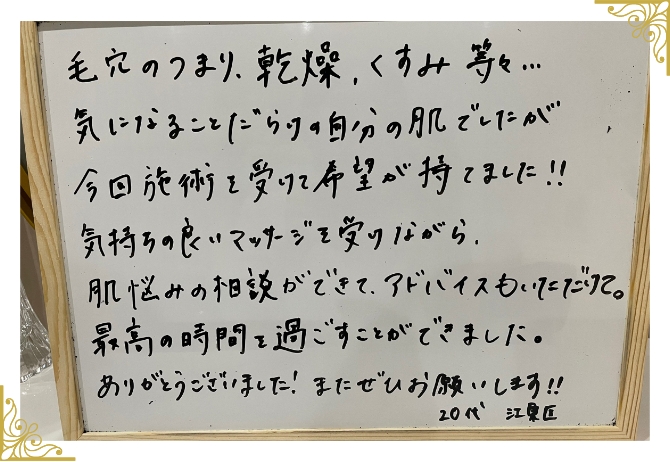 毛穴のつまり、乾燥、くすみ 等々…
気になることだらけの自分の肌でしたが
今回施術を受けて希望が持てました!!
気持ちの良いマッサージを受けながら、
肌悩みの相談ができて、アドバイスもいただけて。
最高の時間を過ごすことができました。
ありがとうございました! またぜひお願いします!!
20代 江東区